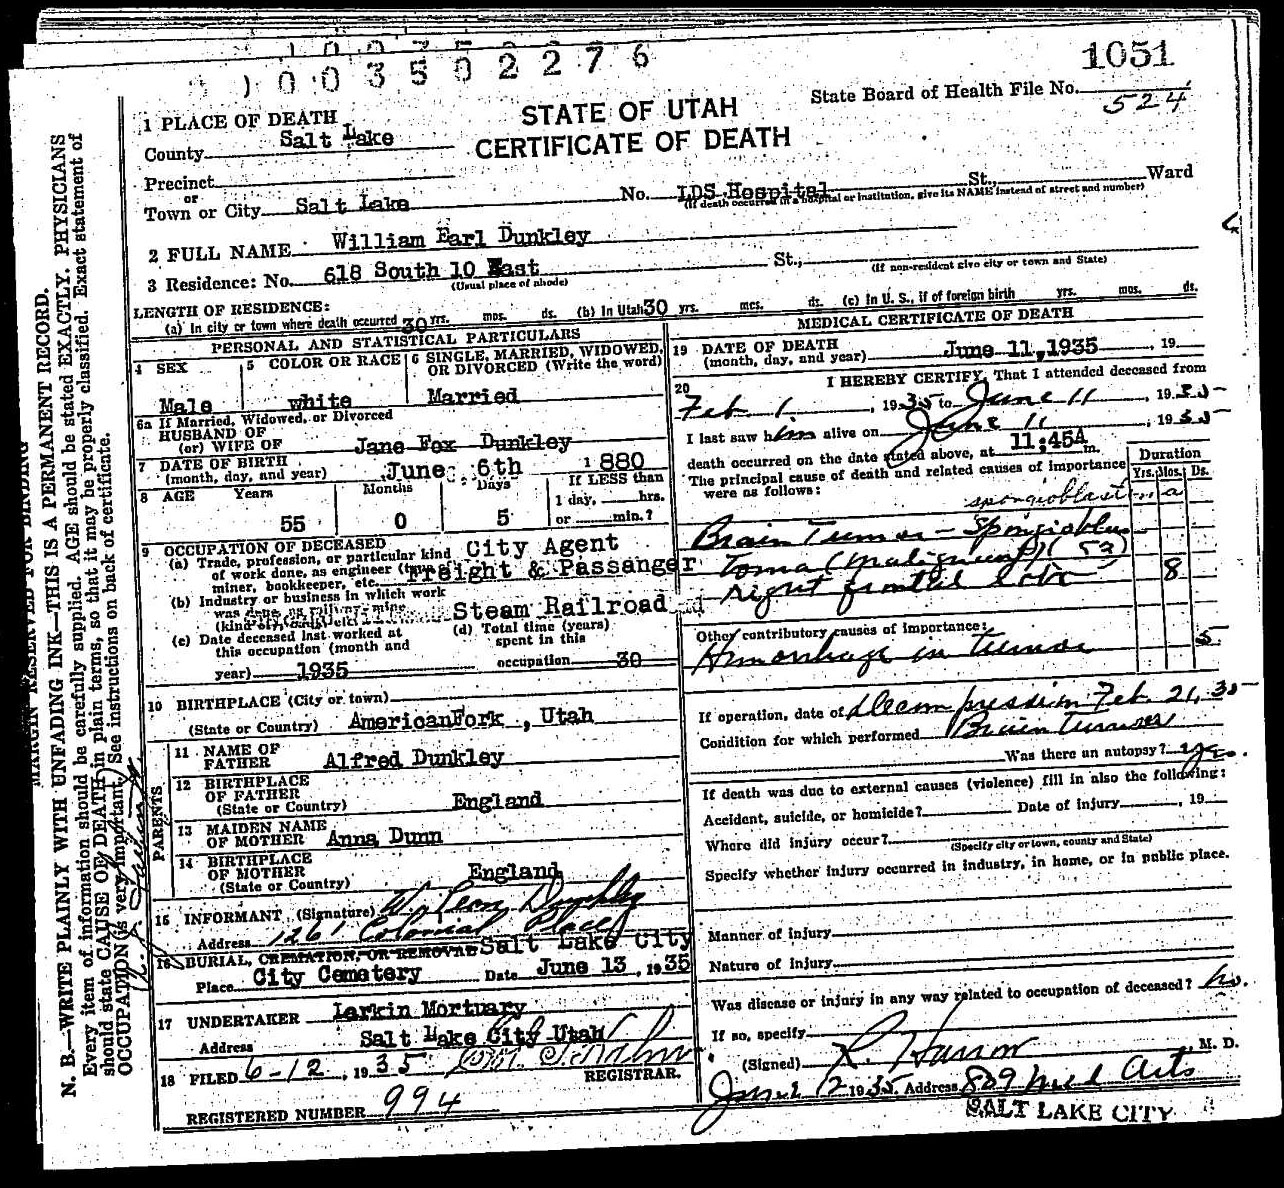 1003502276
1051
State Board of Health File No. 524
STATE OF UTAH
CERTIFICATE OF DEATH
1 PLACE OF DEATH
County Salt Lake
Precinct
or
Town or City Salt Lake No. LDS Hospital St., Ward
(If death occurred in a hospital or institution, give its NAME instead of street and number)
2 FULL NAME William Earl Dunkley
3 Residence: No. 618 South 10 East St.,
(Usual place of abode) (If non-resident give city or town and State)
LENGTH OF RESIDENCE:
(a) In city or town where death occurred 30 yrs. mos. ds. (b) In Utah 30 yrs. mos. ds. (c) In U. S., if of foreign birth yrs. mos. ds.
PERSONAL AND STATISTICAL PARTICULARS
4 SEX
Male
5 COLOR OR RACE
white
6 SINGLE, MARRIED, WIDOWED,
OR DIVORCED (Write the word)
Married
6a If Married, Widowed, or Divorced
HUSBAND OF
(or) WIFE OF Jane Fox Dunkley
7 DATE OF BIRTH
(month, day, and year) June 6th 1880
8 AGE Years Months Days If LESS than
1 day, hrs.
55 0 5 or min.?
9 OCCUPATION OF DECEASED
(a) Trade, profession, or particular kind City Agent
of work done, as engineer
miner, bookkeeper, etc. Freight & Passanger
(b) Industry or business in which work
was done, as railway, mine
Steam Railroad
(c) Date deceased last worked at
this occupation (month and
year) 1935
(d) Total time (years)
spent in this
occupation 30
10 BIRTHPLACE (City or town)
(State or Country) AmericanFork , Utah
PARENTS
11 NAME OF
FATHER Alfred Dunkley
12 BIRTHPLACE
OF FATHER
(State or Country) England
13 MAIDEN NAME
OF MOTHER Anna Dunn
14 BIRTHPLACE
OF MOTHER
(State or Country) England
15 INFORMANT (Signature) W. Leon Dunkley
Address 1261 Colonial Place
16 BURIAL, CREMATION, OR REMOVAL Salt Lake City
Place City Cemetery Date June 13, 1935
17 UNDERTAKER Larkin Mortuary
Address Salt Lake City Utah
18 FILED 6-12, 1935
REGISTRAR.
REGISTERED NUMBER 994
MEDICAL CERTIFICATE OF DEATH
19 DATE OF DEATH
(month, day, and year) June 11, 1935, 19
20 I HEREBY CERTIFY, That I attended deceased from
Feb 1, 1935 to June 11, 1935
I last saw him alive on June 11, 1935
death occurred on the date stated above, at 11:45A m.
The principal cause of death and related causes of importance
were as follows:
Duration
Yrs. Mos. Ds.
spongioblastoma
Brain Tumor - Spongioblas
toma (Malignant) (53)
right frontal lobe 8
Other contributory causes of importance:
Hemorrhage in tumor 5
If operation, date of Decompression Feb 21, 35
Condition for which performed Brain Tumor
Was there an autopsy? yes.
If death was due to external causes (violence) fill in also the following:
Accident, suicide, or homicide? Date of injury , 19
Where did injury occur?
(Specify city or town, county and State)
Specify whether injury occurred in industry, in home, or in public place.
Manner of injury
Nature of injury
Was disease or injury in any way related to occupation of deceased? no.
If so, specify
(Signed) R. , M. D.
June 12 1935 Address 809 Med Arts
SALT LAKE CITY
MARGIN RESERVED FOR BINDING
N. B.—WRITE PLAINLY WITH UNFADING INK—THIS IS A PERMANENT RECORD.
Every item of information should be carefully supplied. AGE should be stated EXACTLY. PHYSICIANS
should state CAUSE OF DEATH in plain terms, so that it may be properly classified. Exact statement of
OCCUPATION is very important. See instructions on back of certificate.